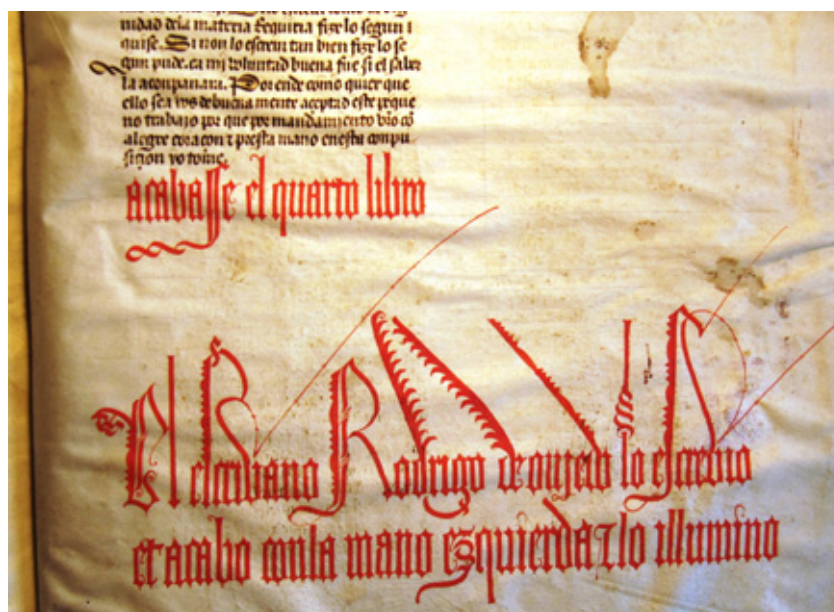 nidad dela materia Requiria fize lo segun i
quise. Si non lo escreui tan bien fize lo se
gun pude. ca mi voluntad buena fue si el saber
la aconpanara. Por ende como quier que
ello sea vos de buena mente aceptad este peque
no trabajo por que por mandamiento vro cō
alegre coracon τ presta mano en esta conpu
sicion yo tome.
acabasse el quarto libro
El escriuano Rodrigo de ouiedo lo escreuio
et acabo con la mano ezquierda τ lo illumino